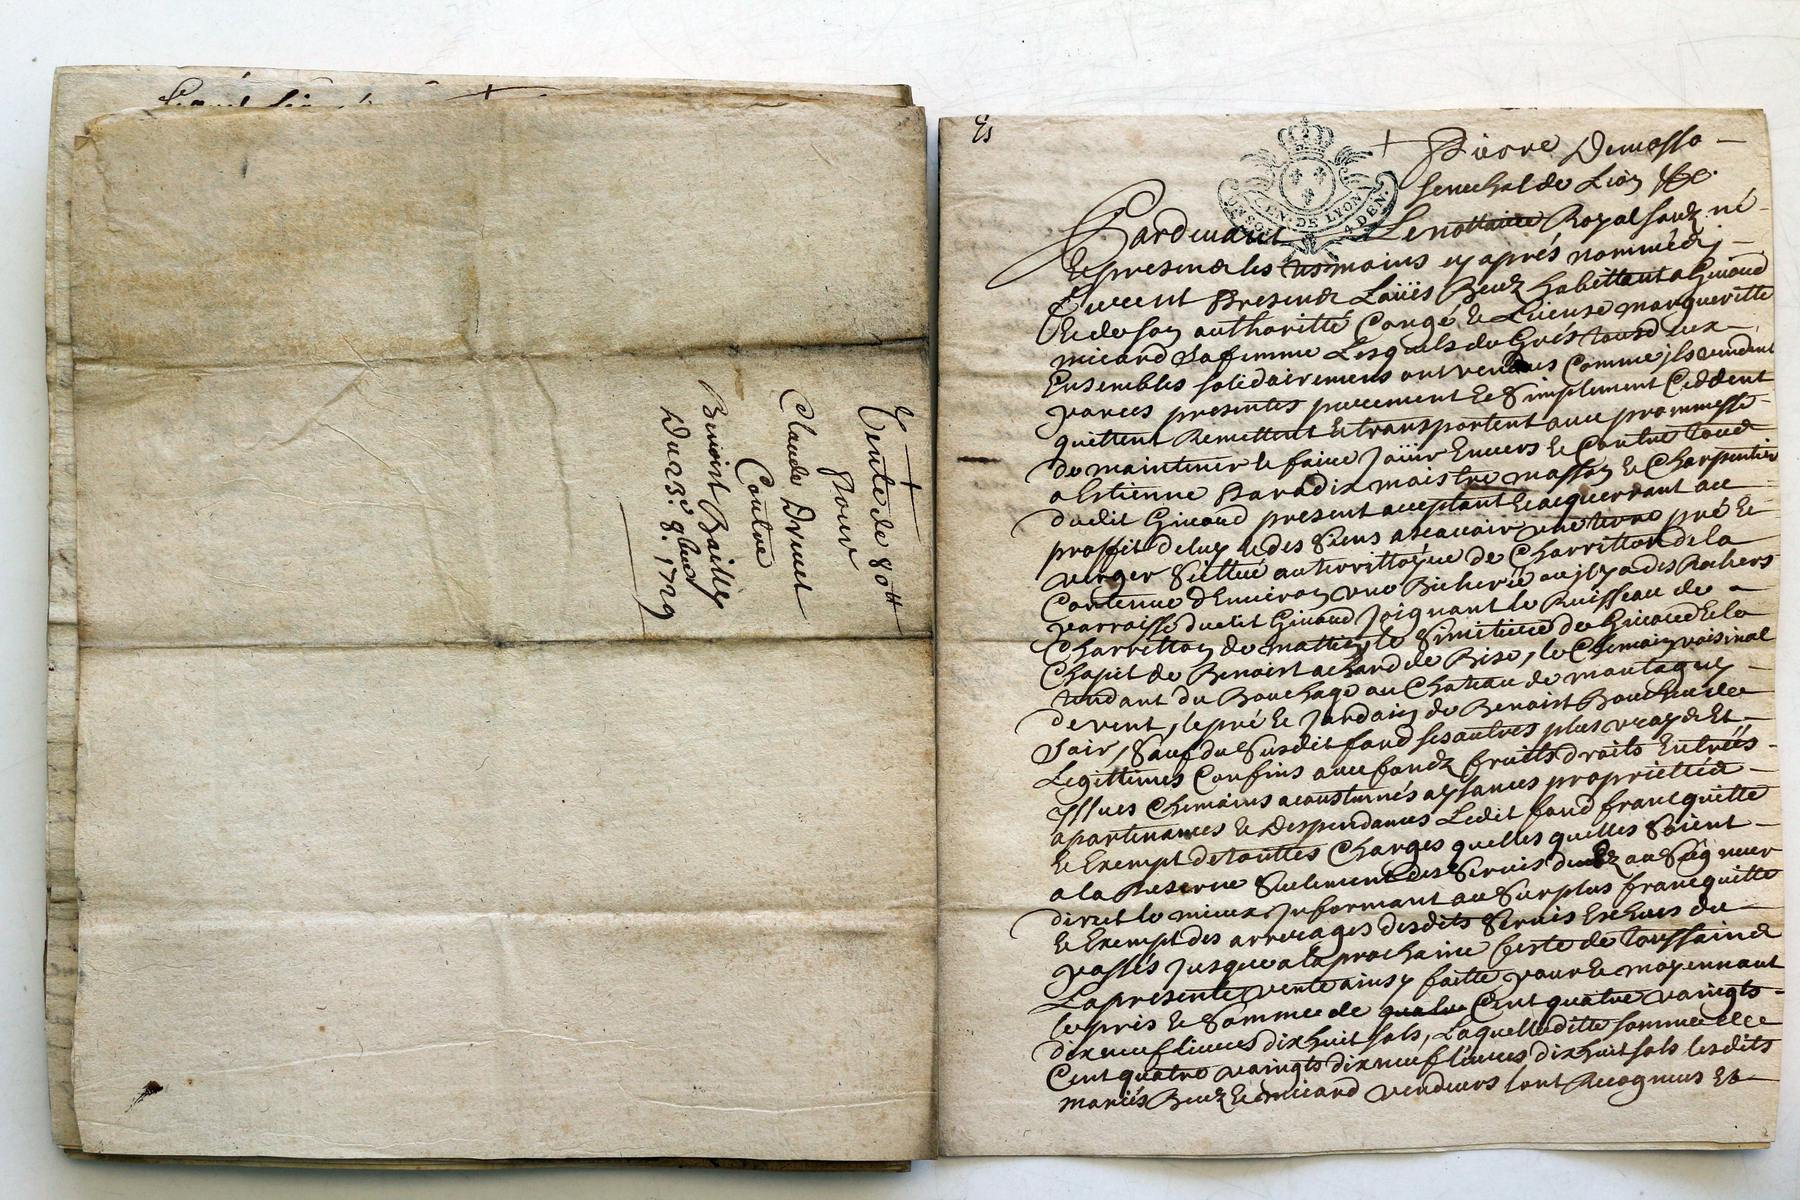 Vente de 80ᵗᵗ
Pour
Claude Drevet
Contre
Benoist Bailly
Du 23ᵉ 8bre 1729
Es
Pierre Demasso
senechal de Lion &c.
GEN. DE LYON
Pardevant Le nottaire Royal soubz né
Et presendz les tesmoins cy après nommés
furent presendz Loüis Beuz habittant a Giraud
Et de son authoritté Congé & License margueritte
micard sa femme Lesquels de Grés tous deux
Ensembles solidairemens ont vendues Comme jls vendent
par ces presentes purement Et Simplement Ceddent
quittent Remettent & transportent avec prommesse
de maintenir & faire Joüir Envers & Contre toud
a Estienne Paradix maistre masson & Charpentier
dudit Giraud present aceptant & acquerrant au
proffit de luy & des Siens ascavoir une terre pré &
verger Scittué au territtoyre de Charritton de la
Contenue d'Environ une Bicherée ou jl y a des Rochers
parroisse dudit Giraud Joignant le Ruisseau de
Charritton de mattin, le Simitiere de Giraud & la
Chapel de Benoist achard de Bise, le Chemain voisinal
tendant du Bouchage au Chateau de montagny
de vent, le pré & Jardain de Benoist
Soir, Sauf du Susdit fond ses autres plus vrays Et
Legittimes Confins avec fondz fruitts droits Entrées
Yssues Chemains acoustumés aysances proprietted
apartenances & Despendances Ledit fond franc quitte
& Exempt de touttes Charges quelles quelles Soient
a la Reserve Seulement des Servis deubz au Seigneur
direct le mieux Jnformant au Surplus franc quitte
& Exempt des arrerages desdits Servis Escheus du
passés Jusques a la prochaine feste de toussaind
La presente vente ainsy faitte pour & moyennant
le pris & Somme de quatre Cent quatre vaingts
dixneuf livres dixhuit sols, Laquelle ditte somme de
Cent quatre vaingts dixneuf livres dixhuit sols lesdits
mariés Beuz & micard vendeurs sont Recogneus Et